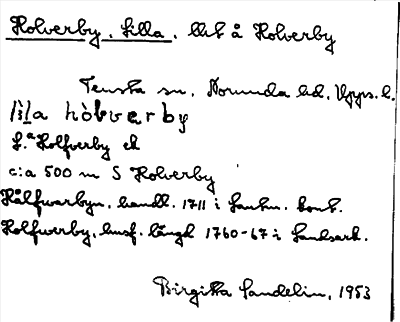 Holverby, Lilla, llet å Holverby
Tensta sn, Norunda hd, Upps. l.
lìla hòlverby
L:a Holfverby ek
c:a 500 m S Holverby
Hålfwarbyn, handl. 1711 i Lantm. kont.
Holfwerby, husf. längd 1760-67 i Landsark.
Birgitta Sandelin, 1953